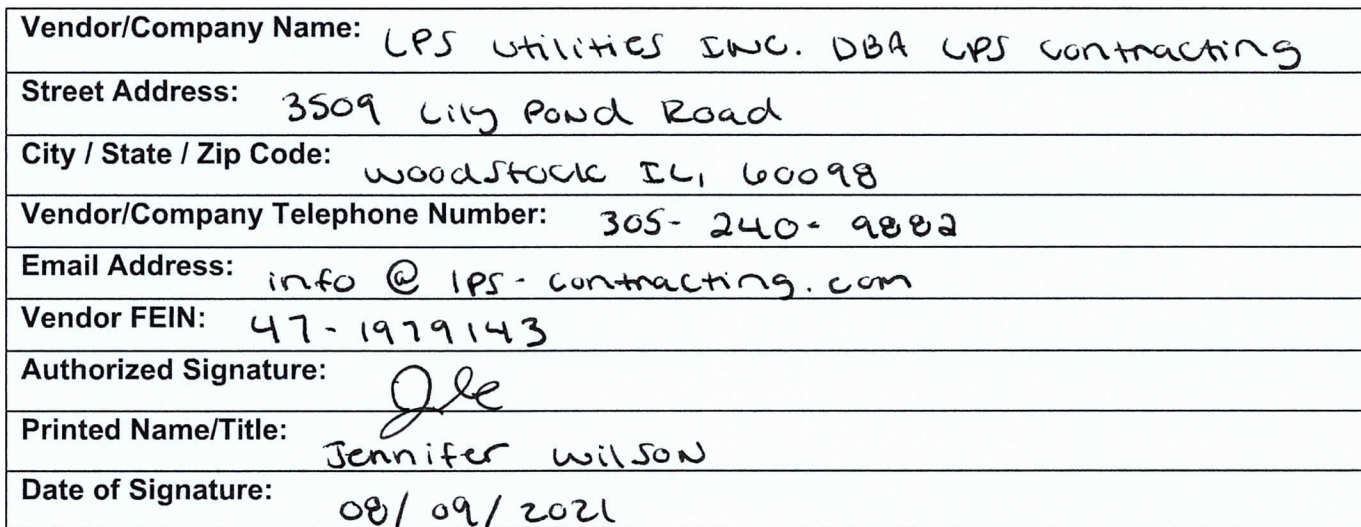 Vendor/Company Name: LPS Utilities INC. DBA LPS Contracting
Street Address: 3509 Lily Pond Road
City / State / Zip Code: Woodstock IL, 60098
Vendor/Company Telephone Number: 305-240-9882
Email Address: info@lps-contracting.com
Vendor FEIN: 47-1979143
Authorized Signature:
Printed Name/Title: Jennifer Wilson
Date of Signature: 08/09/2021